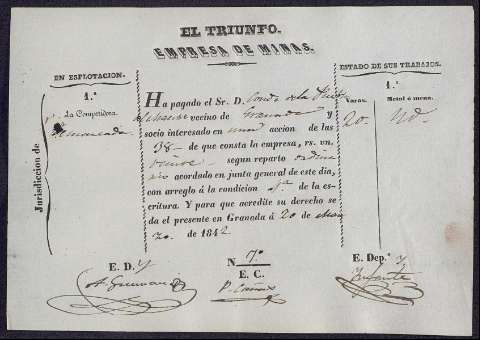 EL TRIUNFO.
EMPRESA DE MINAS.
EN ESPLOTACION.
1.ª
La Competidora.
Jurisdiccion de
Ha pagado el Sr. D. Conde de la
vecino de Granada y
socio interesado en una accion de las
38 de que consta la empresa, rs. vn.
segun reparto ordina
rio acordado en junta general de este dia,
con arreglo á la condicion 4ª de la es-
critura. Y para que acredite su derecho se
da el presente en Granada á 20 de Mar
zo. de 1842.
ESTADO DE SUS TRABAJOS.
1.ª
Varas.
Metal ó mena.
20.
E. D.
N 7º
E. C.
E. Dep.º